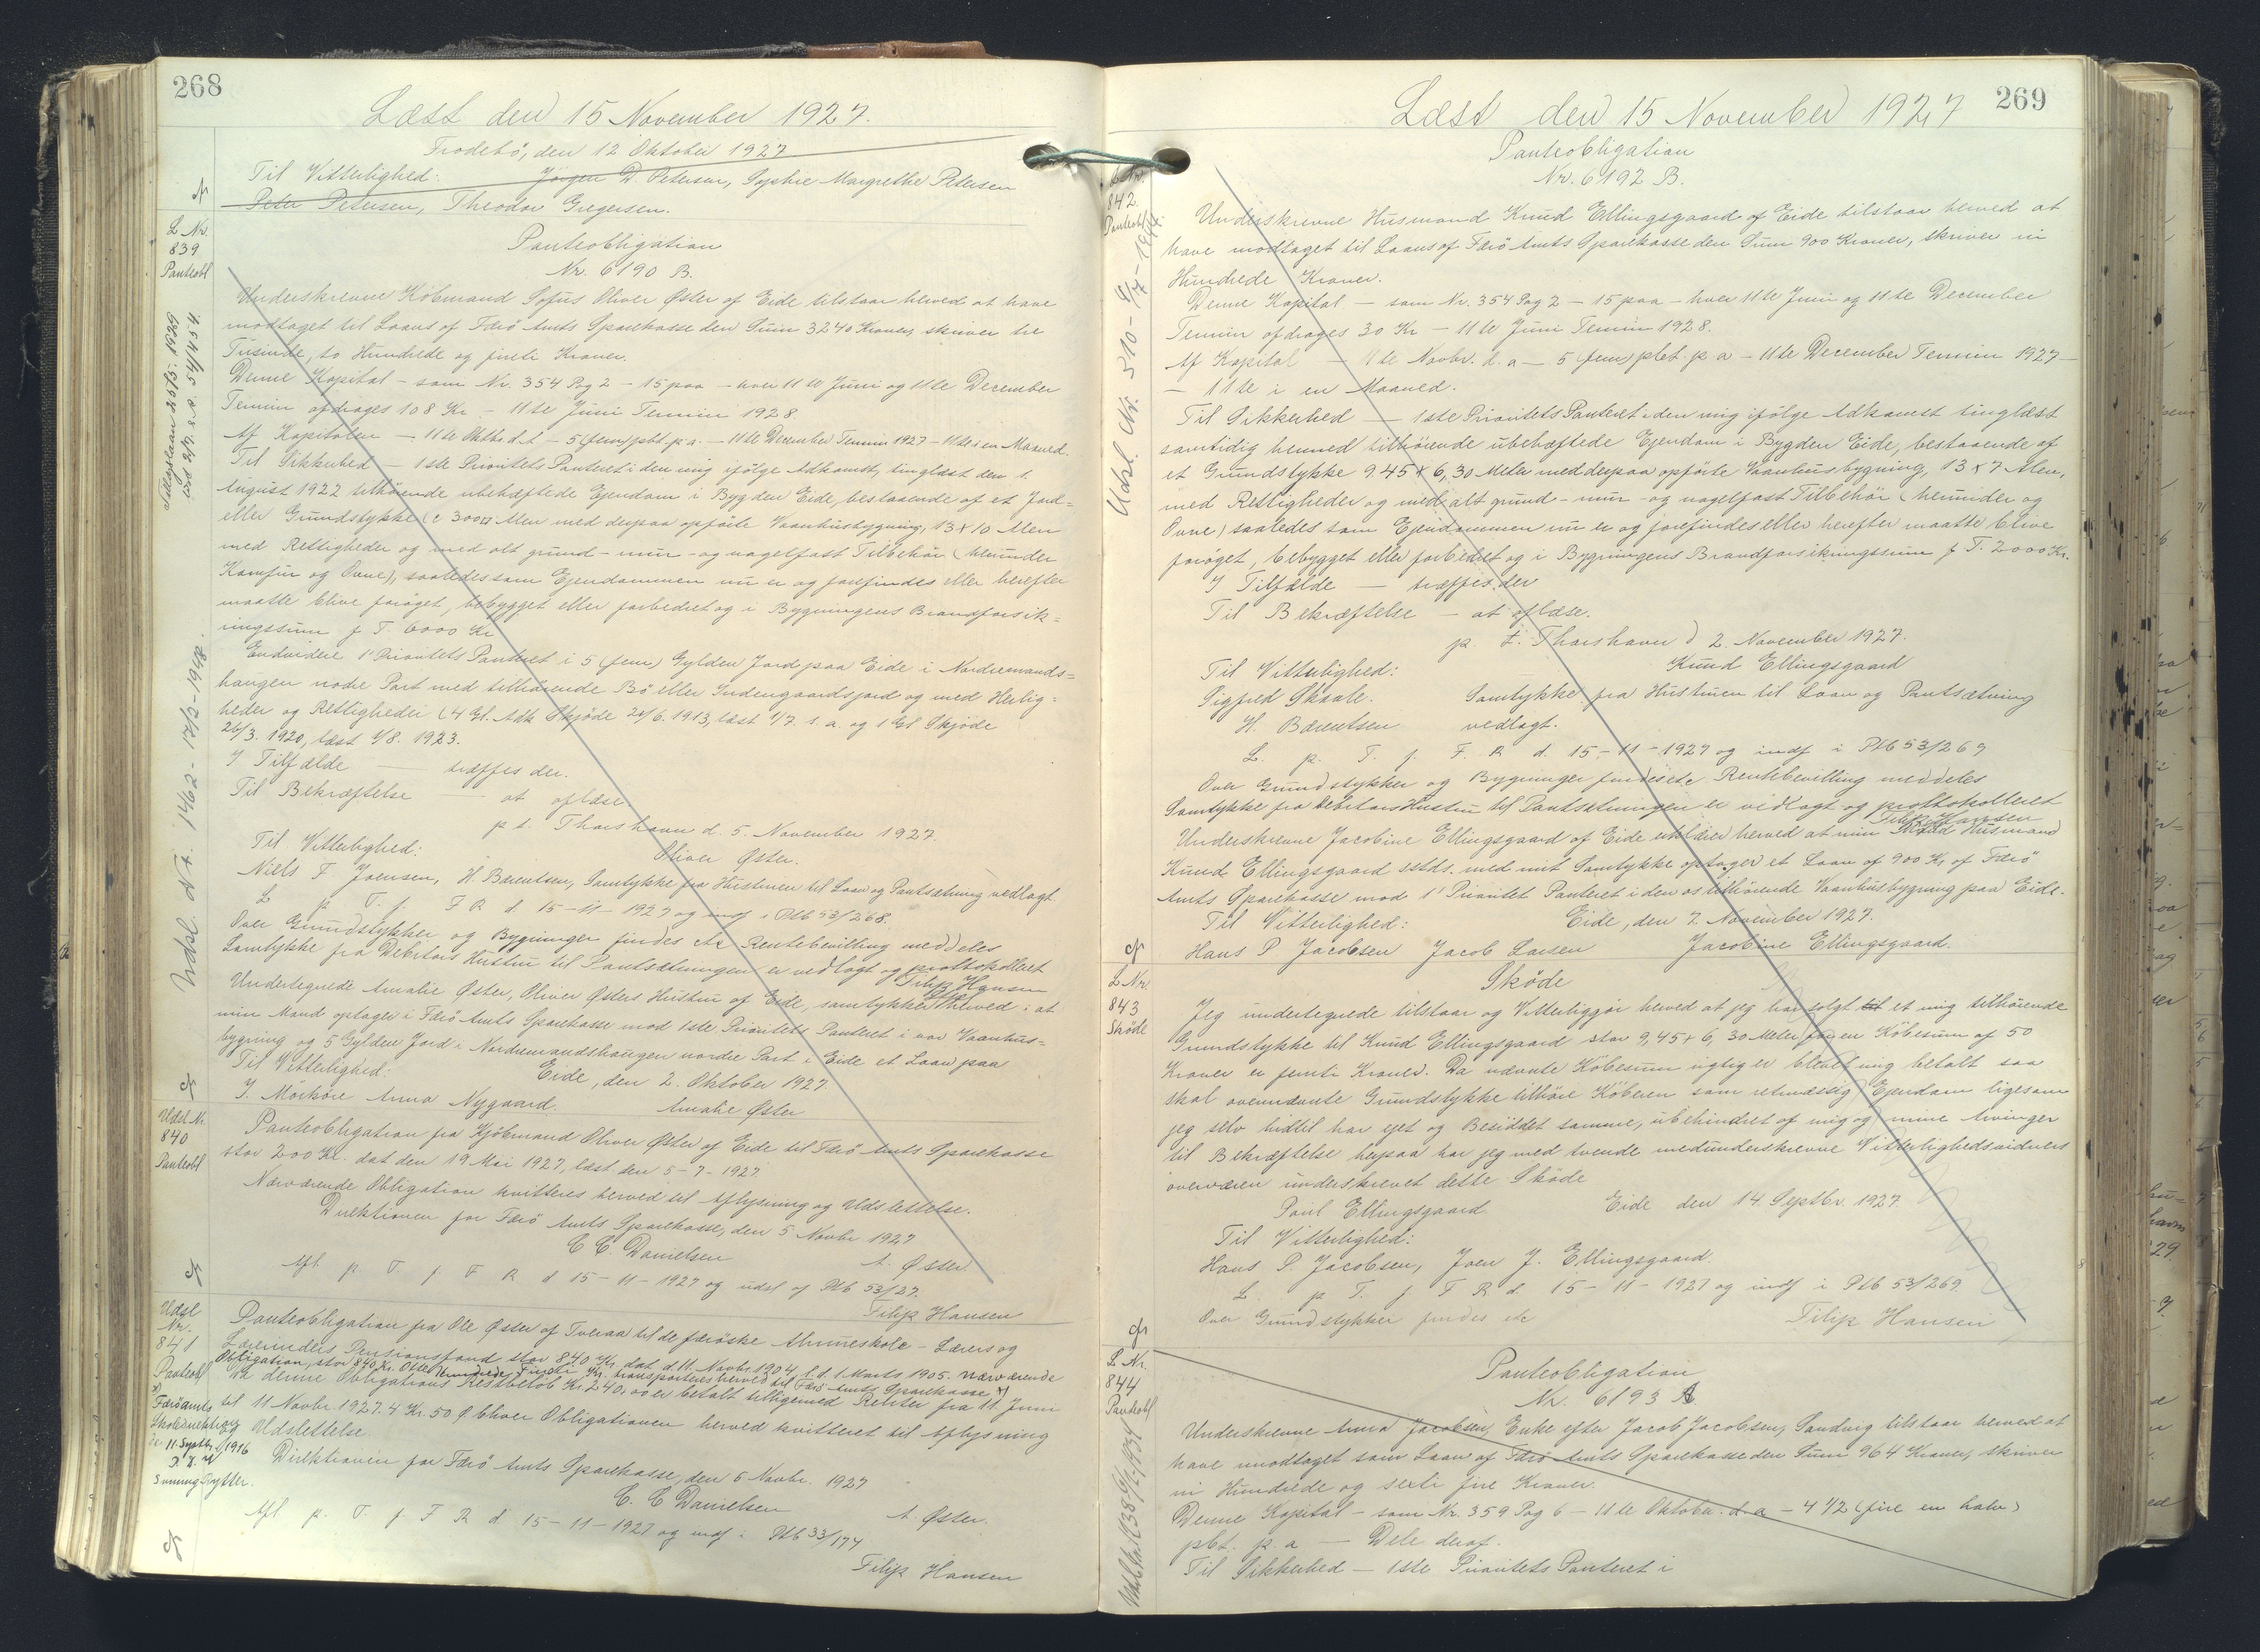 268
Læst den 15 November 1927.
Trodebö, den 12 Oktober 1927
Til Vitterlighed: Jörgen D. Petersen, Sophie Margrethe Petersen
Peter Petersen, Theodor Gregersen.
L Nr.
839
Panteobl
Panteobligation
Nr. 6190 B.
Underskrevne Köbmand Sofus Oliver Øster af Eide tilstaar herved at have
modtaget til Laans af Færö Amts Sparekasse den Sum 3240 Kroner, skriver tre
Tusinde, to Hundrede og fireti Kroner.
Denne Kapital - som Nr. 354 Pag 2 - 15 paa - hver 11te Juni og 11te December
Termin afdrages 108 Kr - 11te Juni Termin 1928.
Af Kapitalen - 11te Oktbr. d. A - 5 (fem) pbt. p. a. - 11te December Termin 1927 - 11te i en Maaned.
Til Sikkerhed - 1ste Prioritets Panteret i den mig ifölge Adkomst, tinglæst den 1.
August 1922 tilhörende ubehæftede Ejendom i Bygden Eide, bestaaende af et Jord=
eller Grundstykke (c 300 □ Alen med derpaa opförte Vaanhusbygning, 13 x 10 Alen
med Rettigheder og med alt grund - mur - og nagelfast Tilbehör (herunder
Komfur og Ovne), saaledes som Ejendommen nu er og forefindes eller herefter
maatte blive foröget, bebygget eller forbedret og i Bygningens Brandforsik=
ringssum f T. 6000 Kr
Endvidere 1' Prioritets Panteret i 5 (fem) Gylden Jord paa Eide i Nordremands=
haugen nodre Part med tilhörende Bö eller Indengaardsjord og med Herlig=
heder og Rettigheder (4 Gl. Adk Skjöde 24/6. 1913, læst 1/7. s. a. og 1 Gl Skjöde
26/3. 1920, læst 1/8. 1923.
I Tilfælde - træffes der.
Til Bekræftelse - at aflæse
p t. Thorshavn d. 5. November 1927.
Til Vitterlighed: Oliver Øster.
Niels F Joensen, H. Bærentsen, Samtykke fra Hustruen til Laan og Pantsætning vedlagt
L p. T. f. F R d. 15-11-1927 og indf i Ptb 53/268.
Over Grundstykker og Bygninger findes etc Rentebevilling meddeles
Samtykke fra Debitors Hustru til Pantsætningen er vedlagt og prottokolleret
Filip Hansen
Undertegnede Amalie Øster, Oliver Østers Hustru af Eide, samtykker herved i at
min Mand optager i Færö Amts Sparekasse mod 1ste Prioritets Panteret i vor Vaanhus=
bygning og 5 Gylden Jord i Nordremandshaugen nordre Part i Eide et Laan paa
Til Vitterlighed: Eide, den 2. Oktober 1927
J. Mörköre Anna Nygaard. Amalie Øster
Tillægslaan 20/5. 1929
Udsl. Nr. 1462 - 17/2-1948.
Udsl Nr.
840
Panteobl
Panteobligation fra Kjöbmand Oliver Øster af Eide til Færö Amts Sparekasse
stor 200 Kr. dat den 19 Mai 1927, læst den 5-7-1927.
Nærværende Obligation kvitteres herved til Aflysning og Udslettelse.
Direktionen for Færö Amts Sparekasse, den 5 Novbr 1927
C C. Danielsen A. Øster.
Afl p. T. f. F R d 15-11-1927 og udsl af Ptb 53/27.
Filip Hansen
Udsl
Nr.
841
Panteobl
Panteobligation fra Ole Øster af Tveraa til de færöske Almueskole - Lærers og
Lærerinders Pensionsfond stor 840 Kr dat d. 11. Novbr. 1904 l. d. 1. Marts 1905. Nærværende
Obligation, stor 840 Kr. Otte Hundrede Fireti Kr, transporteres herved til Færö Amts Sparekasse x)
Da denne Obligations Restbelöb Kr. 240,00 er betalt tilligemed Renter fra 11. Juni
til 11 Novbr. 1927. 4 Kr. 50 Ø bliver Obligationen herved kvitteret til Aflysning
og Udslettelse.
x)
Færö amts
Skoledirektion
d. 11. Septbr. 1916
Direktionen for Færö Amts Sparekasse, den 6 Novbr. 1927
C. C Danielsen A. Øster.
Afl p. T. f F R d 15-11-1927 og indf i Ptb 33/174
Filip Hansen
269
Læst den 15 November 1927
842.
Panteobl
Panteobligation
Nr. 6192 B.
Underskrevne Husmand Knud Ellingsgaard af Eide tilstaar herved at
have modtaget til Laans af Færö Amts Sparekasse den Sum 900 Kroner, skriver ni
Hundrede Kroner.
Denne Kapital - som Nr. 354 Pag 2 - 15 paa - hver 11te Juni og 11te December
Termin afdrages 30 Kr - 11te Juni Termin 1928.
Af Kapital - 11te Novbr. d. a - 5 (fem) pbt. p a - 11te December Termin 1927 -
- 11te i en Maaned.
Til Sikkerhed - 1ste Prioritets Panteret i den mig ifölge Adkomst tinglæst
samtidig hermed tilhörende ubehæftede Ejendom i Bygden Eide, bestaaende af
et Grundstykke 9.45 x 6,30 Meter med derpaa opförte Vaanhusbygning, 13 x 7 Alen,
med Rettigheder og med alt grund - mur - og nagelfast Tilbehör (herunder og
Ovne) saaledes som Ejendommen nu er og forefindes eller herefter maatte blive
foröget, bebygget eller forbedret og i Bygningens Brandforsikringssum f T. 2000 Kr.
I Tilfælde - træffes der
Til Bekræftelse - at aflæse.
p. t. Thorshavn d 2. November 1927.
Til Vitterlighed: Knud Ellingsgaard
Sigfred Skaale. Samtykke fra Hustruen til Laan og Pantsætning
H. Bærentsen vedlagt.
L. p. T. f. F. R d. 15-11-1927 og indf i Ptb 53/269
Over Grundstykker og Bygninger findes etc Rentebevilling meddeles
Samtykke fra Debitors Hustru til Pantsætningen er vedlagt og prottokolleret
Filip Hansen
Underskrevne Jacobine Ellingsgaard af Eide erklærer herved at min Mand Husmand
Knud Ellingsgaard sstds. med mit Samtykke optager et Laan af 900 Kr. af Færö
Amts Sparekasse mod 1' Prioritet Panteret i den os tilhörende Vaanhusbygning paa Eide.
Til Vitterlighed: Eide, den 7. November 1927.
Hans P Jacobsen Jacob Larsen Jacobine Ellingsgaard.
L Nr.
843
Sköde
Sköde
Jeg undertegnede tilstaar og Vitterliggjör herved at jeg har solgt til et mig tilhörende
Grundstykke til Knud Ellingsgaard stor 9,45 x 6,30 Meter for en Köbesum af 50
Kroner er femti Kroner. Da nævnte Köbesum rigtig er blevet mig betalt saa
skal ovennævnte Grundstykke tilhöre Köberen som retmæssig Ejendom ligesom
jeg selv hidtil har ejet og Besiddet samme, ubehindret af mig og mine Arvinger
til Bekræftelse herpaa har jeg med tvende medunderskrevne Vitterlighedsvidners
overværen underskrevet dette Sköde
Poul Ellingsgaard Eide den 14 Septbr. 1927.
Til Vitterlighed:
Hans P. Jacobsen, Joen J. Ellingsgaard.
L. p T. f F R d. 15-11-1927 og indf i Ptb 53/269.
Over Grundstykker findes etc Filip Hansen
L Nr.
844
Panteobl
Panteobligation
Nr. 6193 A
Underskrevne Anna Jacobsen, Enke efter Jacob Jacobsen, Sandvig tilstaar herved at
have modtaget som Laan af Færö Amts Sparekasse den Sum 964 Kroner, skriver
ni Hundrede og sexti fire Kroner.
Denne Kapital - som Nr. 359 Pag 6 - 11te Oktober. d. a - 4 1/2 (fire en halv)
pbt. p. a - Dele deraf.
Til Sikkerhed - 1ste Prioritets Panteret i